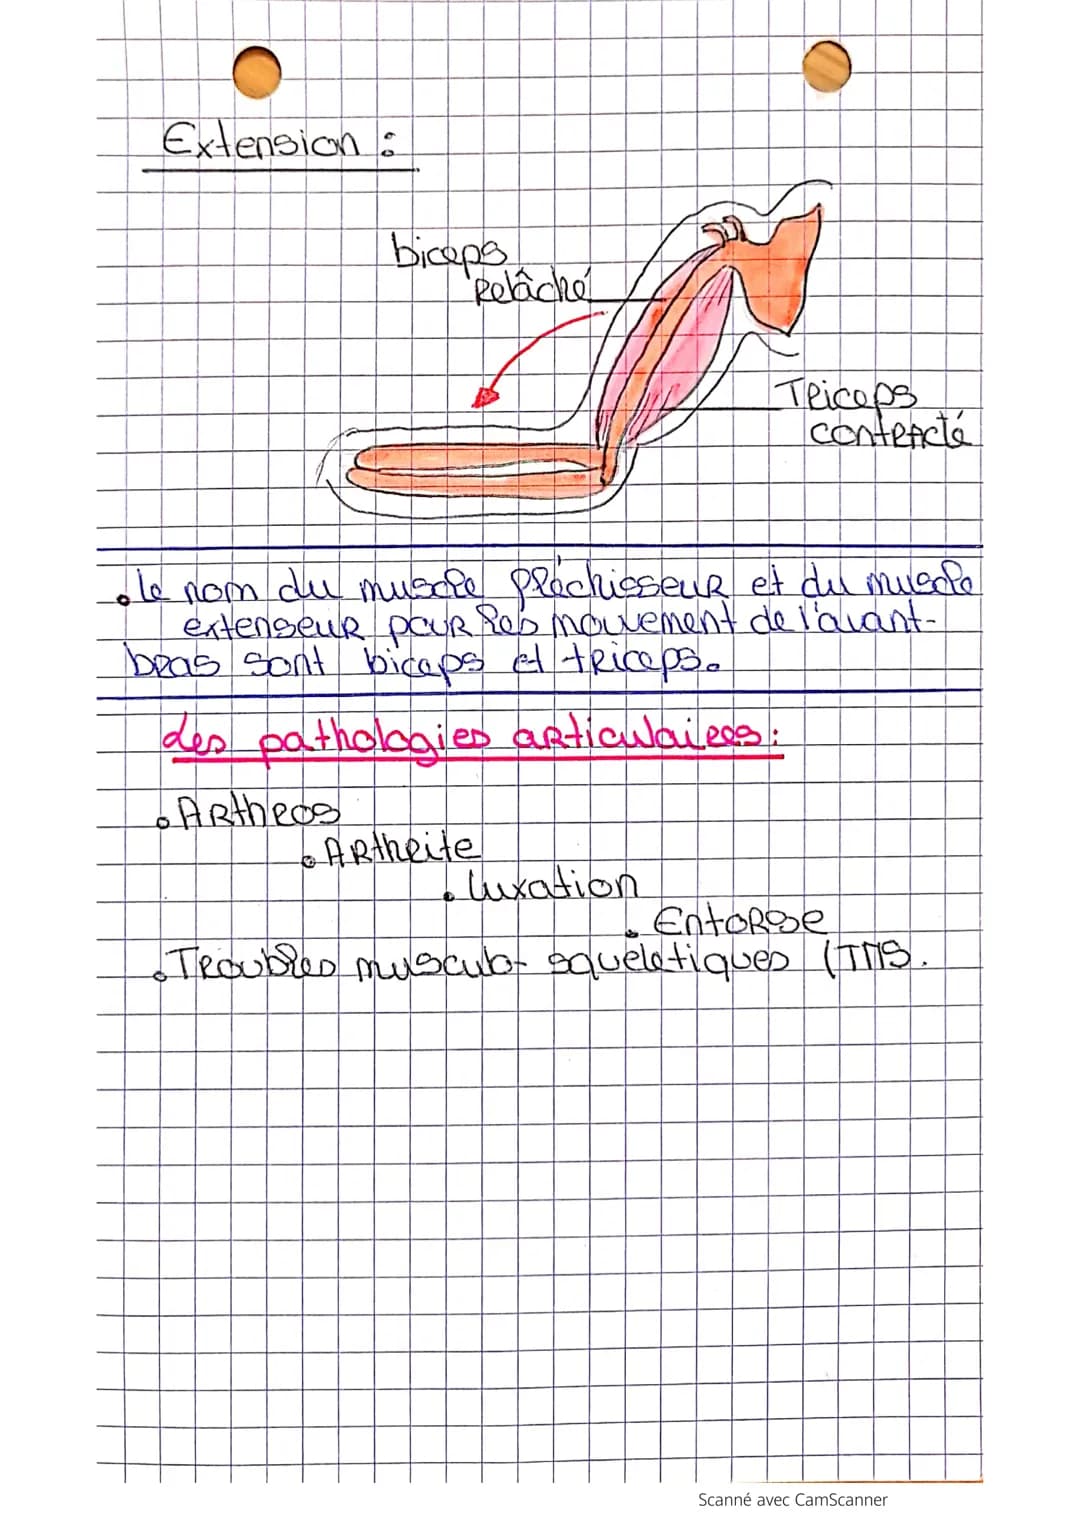 Extension :
biceps
Relâché
Triceps
contracté
• le nom du muscle fléchisseur et du muscle
extenseur pour les mouvement de l'avant-
bras sont biceps et triceps.
des pathologies articulaires :
• Arthros
• Arthrite
• luxation
• Entorse
• Troubles musculo-squeletiques (TMS.
Scanné avec CamScanner